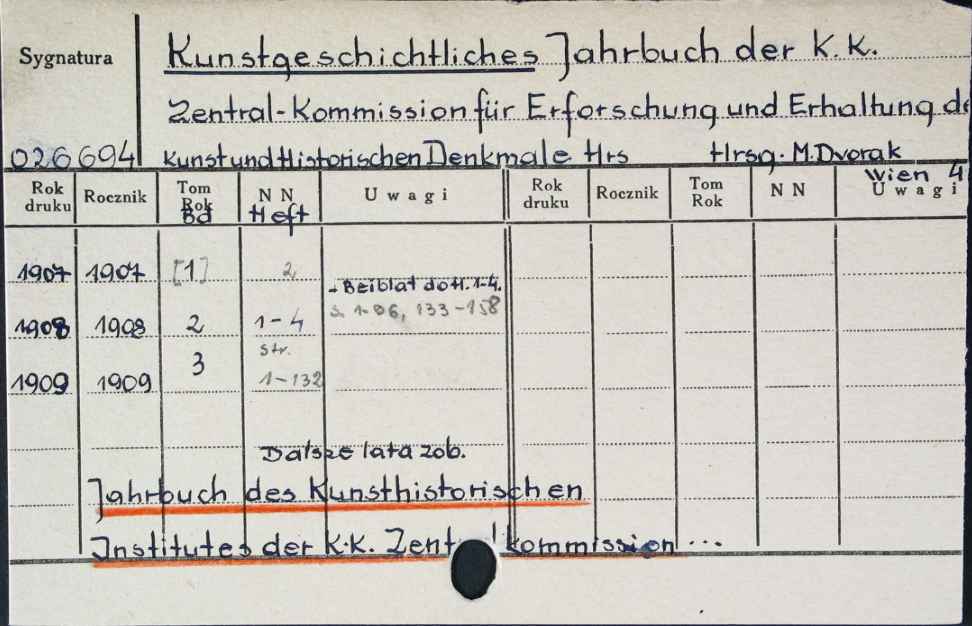 Sygnatura Kunstgeschichtliches Jahrbuch der K.K.
Zentral-Kommission für Erforschung und Erhaltung de
026694 Kunst und Historischen Denkmale Hrs Hrsg. M. Dvorak
Wien 4
Rok druku Rocznik Tom Rok Bd N N Heft U w a g i Rok druku Rocznik Tom Rok N N U w a g i
1907 1907 [1] 2
- Beiblat do H. 1-4.
s. 1-96, 133-158
1908 1908 2 1-4
str.
1909 1909 3 1-132
Dalsze lata zob.
Jahrbuch des Kunsthistorischen
Institutes der K.K. Zent kommission ...